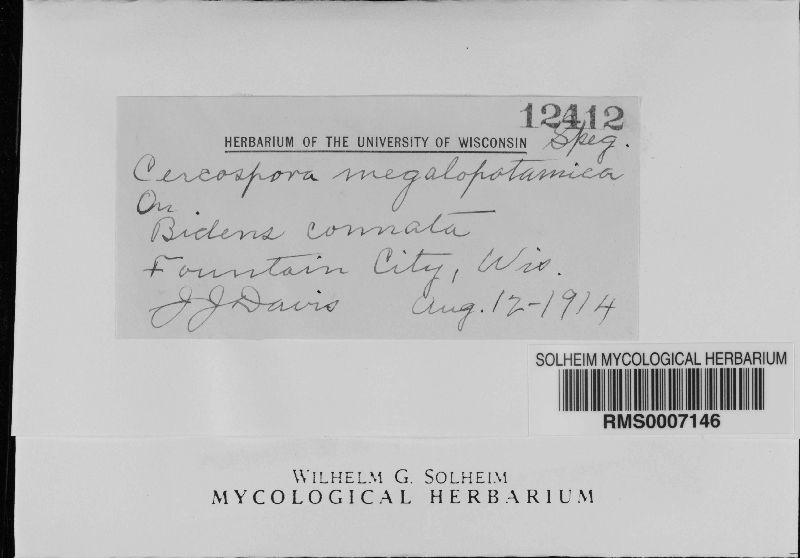 12412
HERBARIUM OF THE UNIVERSITY OF WISCONSIN Speg.
Cercospora megalopotamica
On
Bidens connata
Fountain City, Wis.
J J Davis Aug. 12-1914
SOLHEIM MYCOLOGICAL HERBARIUM
RMS0007146
WILHELM G. SOLHEIM
MYCOLOGICAL HERBARIUM